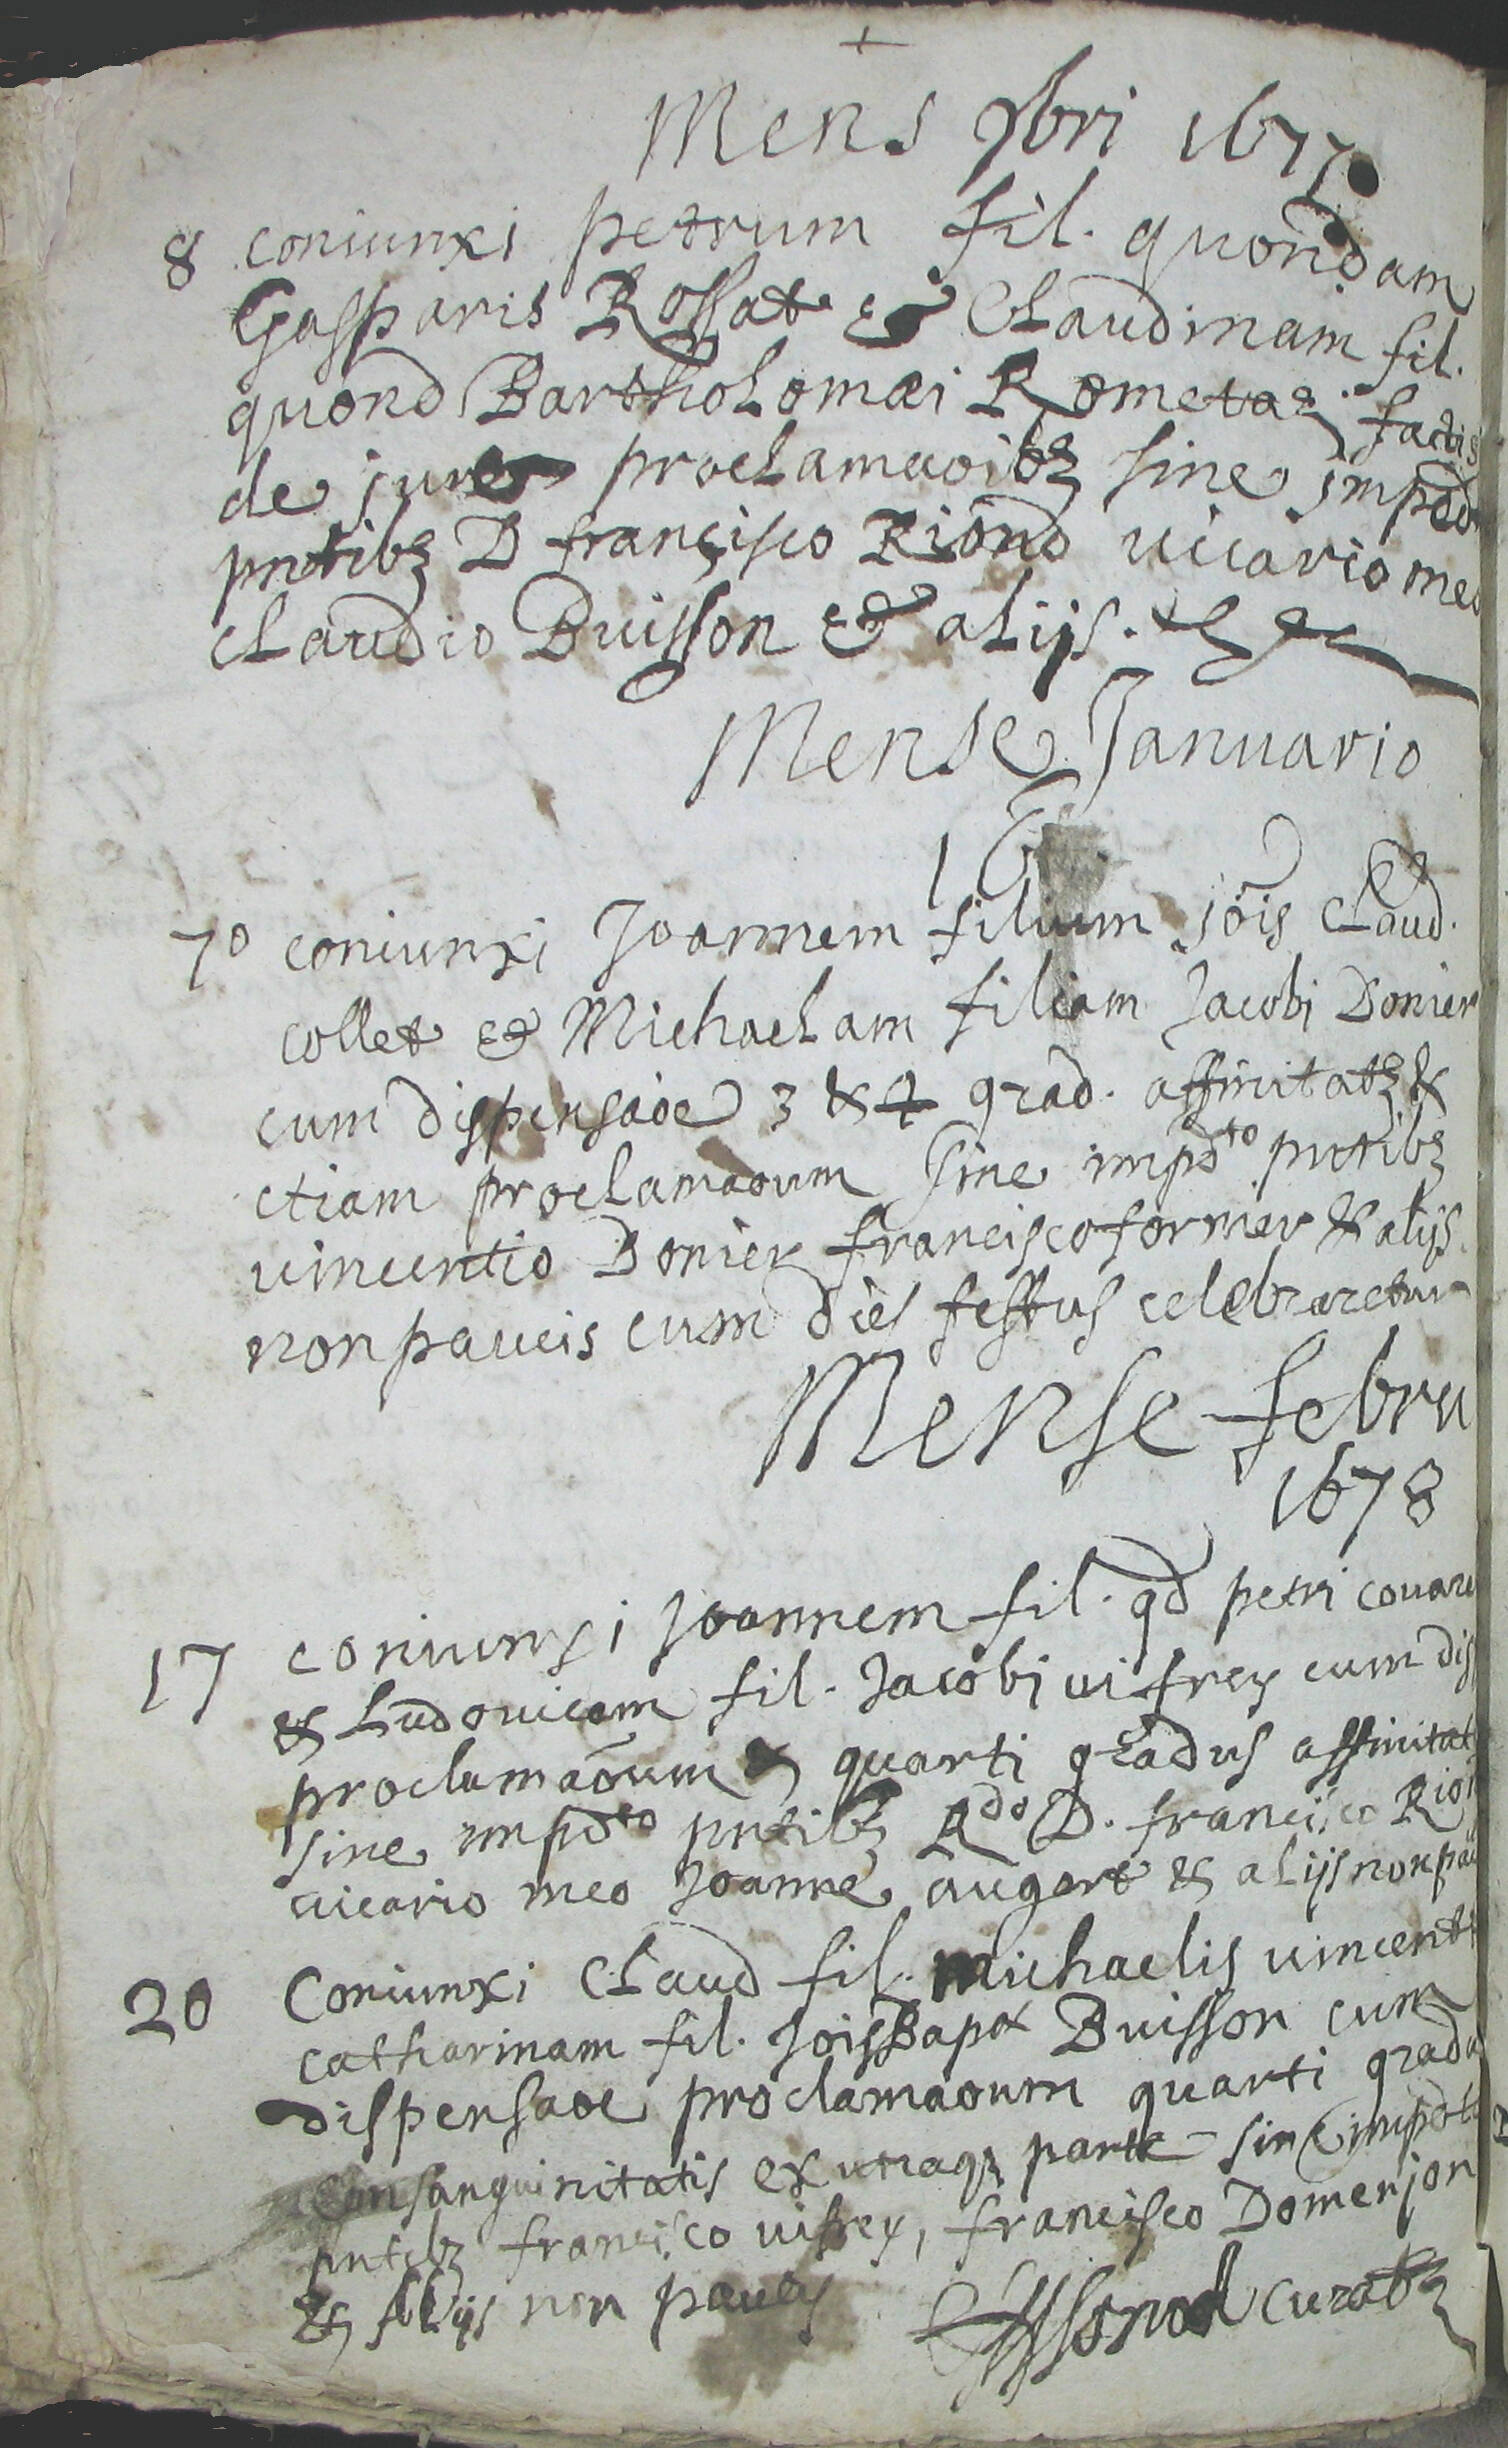 Mens xbri 1677
8 coniunxi petrum fil. quondam
Gasparis Rossat & Claudinam fil.
quond Bartholomæi Rometaz factis
de jure proclamaoibz sine impedto
pntibz D francisco Riond vicario meo
claudio Buisson & alijs.
Mense Januario
16
7o coniunxi Joannem filium Jois Claud.
collet & Michaelam filiam Jacobi Donier
cum dispensaoe 3 & 4 grad. affinitatz &
etiam proclamaoum sine impdto pntibz
vincentio Donier francisco fornier & alijs
non paucis cum dies festus celebraretur
Mense febru
1678
17 coniunxi Joannem fil. qd petri covare
& Ludovicam fil. Jacobi vifrey cum dis
proclamaoum & quarti gradus affinitat
sine impdto pntibz Rdo D. francisco Rion
vicario meo Joanne auger & alijs non pau
20 Coniunxi Claud fil. Michaelis vincent
catharinam fil. Jois Bapt Buisson cum
dispensaoe proclamaoum quarti gradu
consanguinitatis ex utraqz parte sine impdto
pntibz francisco vifrey, francisco Domenjon
& alijs non paucis curatz